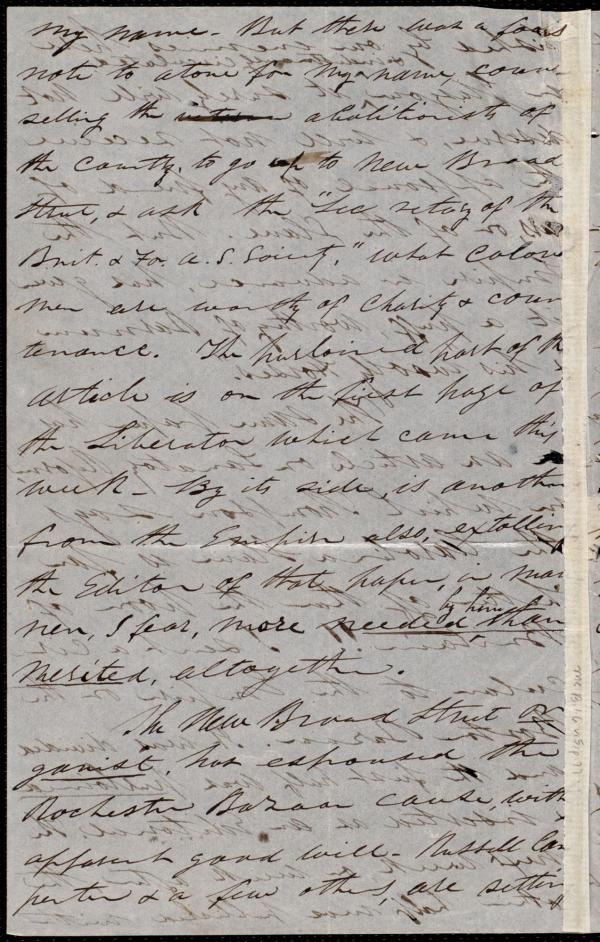 my name - But there was a fools
note to atone for my name, coun-
selling the abolitionists of
the county, to go up to New Broad
Street, & ask the "Secretary of the
Brit. & Fo. A. S. Society," what Colored
men are worthy of charity & coun
tenance. The purloined part of the
article is on the first page of
the Liberator which came this
week - By its side, is another
from the Empire also, extolling
the Editor of that paper, in man
by himself
ner, I fear, more needed than
merited, altogether.
The New Broad Street or
ganist, has espoused the
Rochester Bazaar cause, with
apparent good will - Russell Car
penter & a few others, are setting